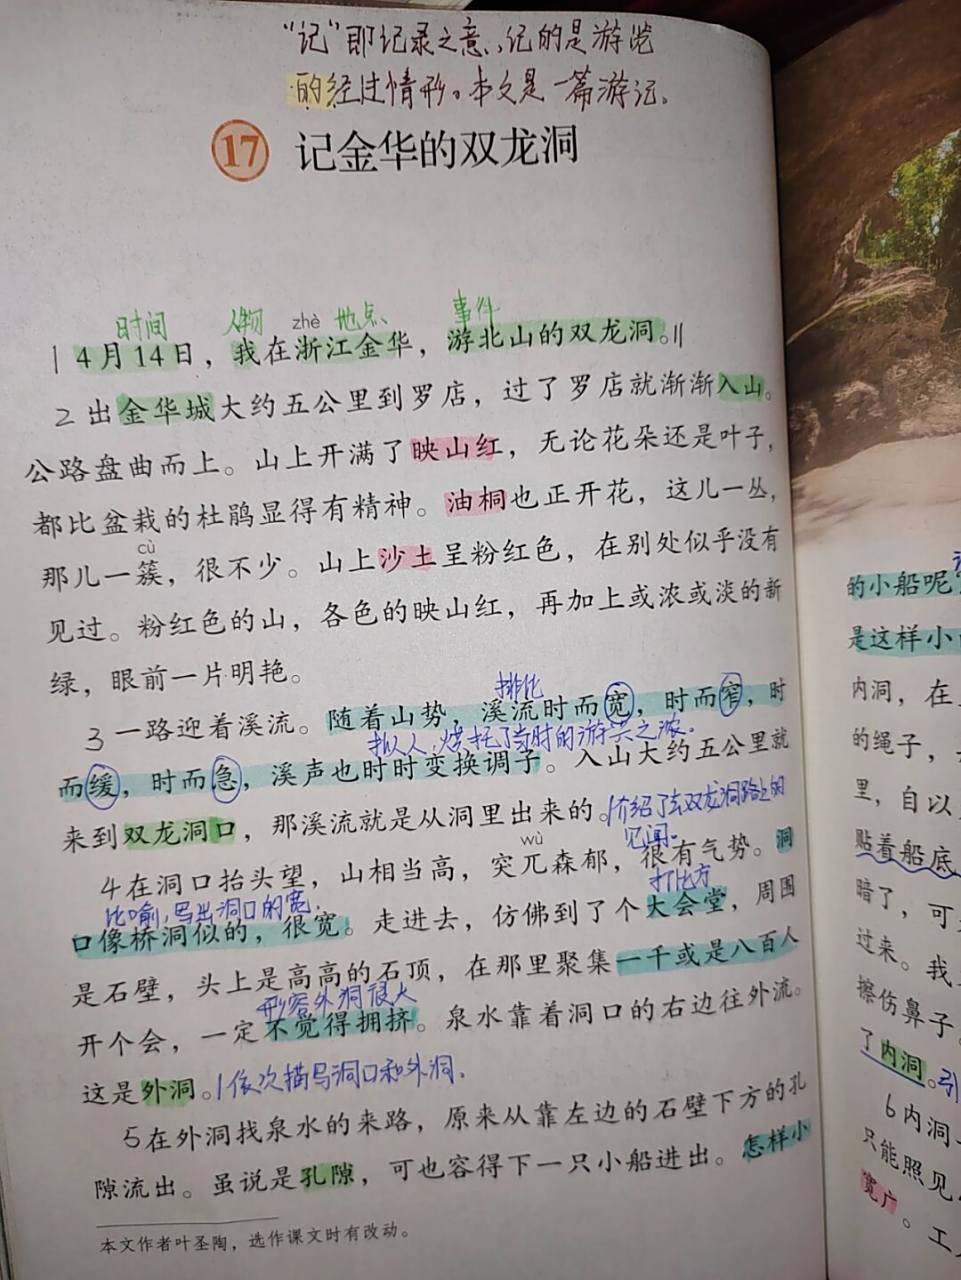 “记”即记录之意，记的是游览
的经过情形。本文是一篇游记。
17 记金华的双龙洞
时间 人物 zhè 地点 事件
4月14日，我在浙江金华，游北山的双龙洞。
2 出金华城大约五公里到罗店，过了罗店就渐渐入山。
公路盘曲而上。山上开满了映山红，无论花朵还是叶子，
都比盆栽的杜鹃显得有精神。油桐也正开花，这儿一丛，
cù
那儿一簇，很不少。山上沙土呈粉红色，在别处似乎没有
见过。粉红色的山，各色的映山红，再加上或浓或淡的新
绿，眼前一片明艳。
排比
3 一路迎着溪流。随着山势，溪流时而宽，时而窄，时
拟人，烘托了当时的游兴之浓。
而缓，时而急，溪声也时时变换调子。入山大约五公里就
来到双龙洞口，那溪流就是从洞里出来的。介绍了去双龙洞路上的
见闻。
wù
4 在洞口抬头望，山相当高，突兀森郁，很有气势。洞
比喻，写出洞口的宽。 打比方
口像桥洞似的，很宽。走进去，仿佛到了个大会堂，周围
是石壁，头上是高高的石顶，在那里聚集一千或是八百人
形容外洞很大
开个会，一定不觉得拥挤。泉水靠着洞口的右边往外流。
这是外洞。依次描写洞口和外洞。
5 在外洞找泉水的来路，原来从靠左边的石壁下方的孔
隙流出。虽说是孔隙，可也容得下一只小船进出。怎样小
本文作者叶圣陶，选作课文时有改动。
的小船呢
是这样小
内洞，在
的绳子，
里，自以
贴着船底
暗了，可
过来。我
擦伤鼻子。
了内洞。引
6 内洞
只能照见
宽广。工